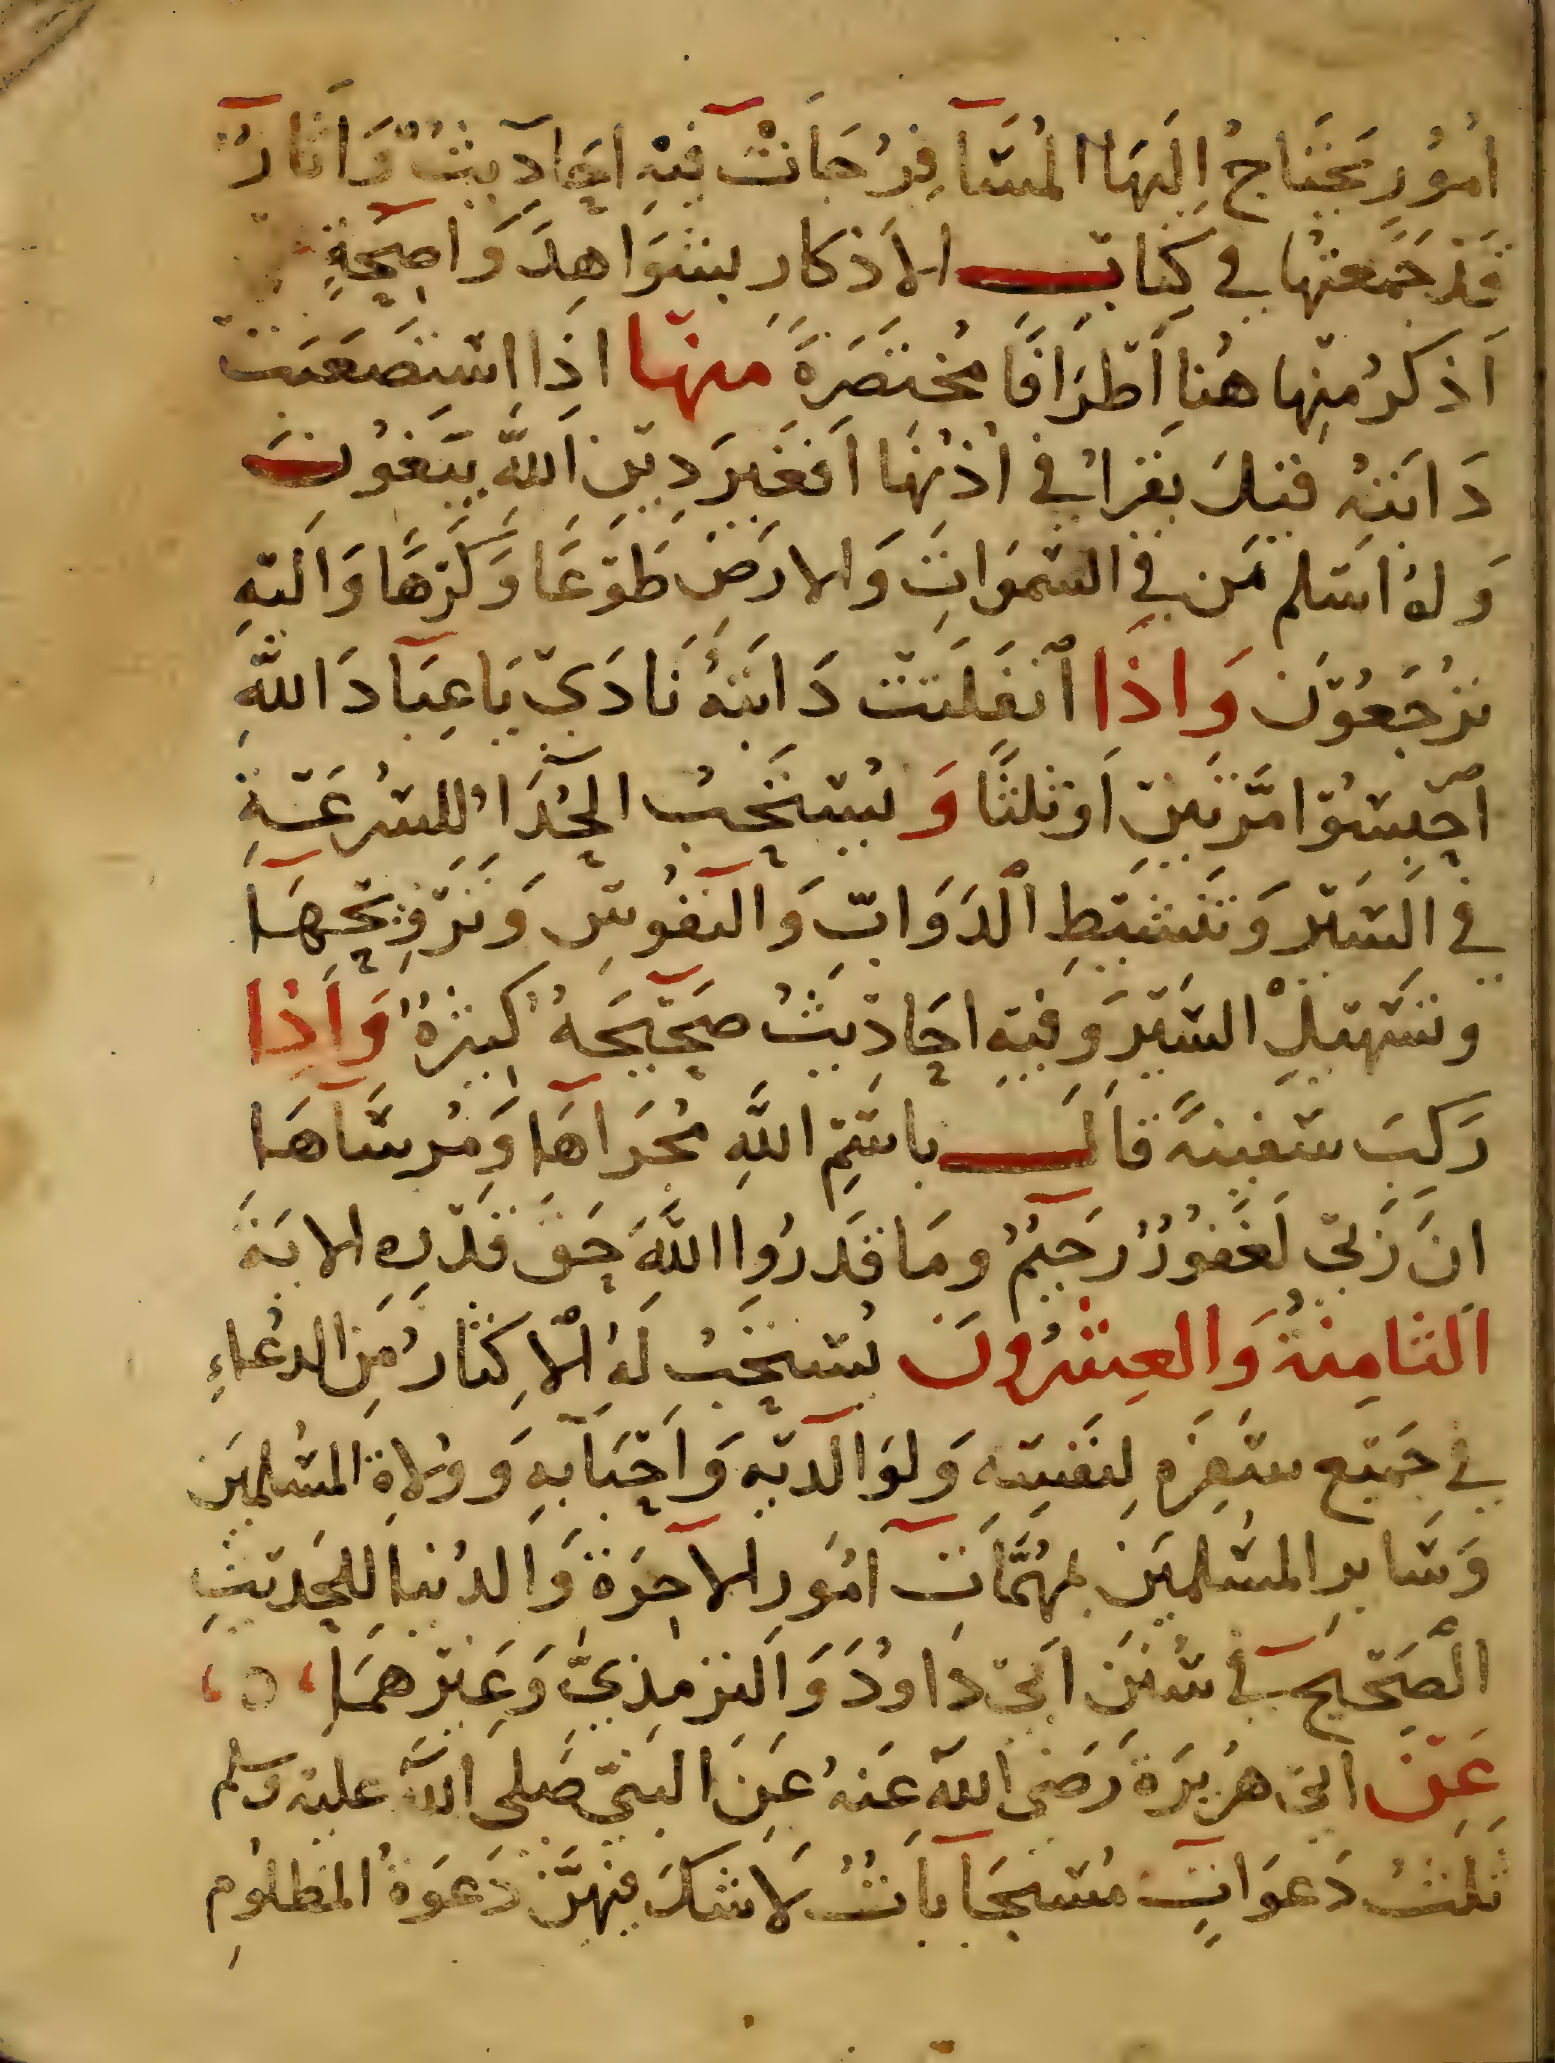 امُور يحتاجُ اِليهَا المُسَافِرُ جَاتْ فيْهِ احَادِيثُ وَآثَارٌ
قَدْ جَمَعتُها في كِتَاب الاَذكار بشَوَاهِدَ وَاضِحَةٍ
اَذكرُ مِنْها هُنا اَطْرَافًا مُختَصَرَةً منْها اذَا اسْتصْعَبَتْ
دَابَتهُ قيلَ يقرأُ في اذُنهَا افغَيرَ دِيْنِ اللَّه يبْغُونَ
وَلهُ اسْلم مَن في السَّموَاتِ وَالارْضِ طَوْعًا وَكَرْهًا وَاليْهِ
يُرْجَعُوْنَ وَاذَا اَنفَلَتَتْ دَابَتهُ نَادَيْ يَا عِبَادَ اللَّهِ
اَحْبِسُوْا مَرَّتَيْنِ اَوْ ثلثًا وَيُسْتحَبُ الحُدَاُ للسُرْعَةِ
في السَيْرِ وَتَنشيْطِ الْدَوَابّ وَالنفُوْسِ وَتَرْوِيْحِهَا
وتسْهيْلِ السَيْر وَفيْهِ احَادِيْثُ صَحْيحَةُ كثيرَةُ وَاَذِا
رَكِبَ سَفينةً قاَلَ باسْمِ اللَّهِ مُجرَاهَا وَمُرسَاهَا
انَ رَبي لَغَفوُرُ رَحيْمُ ومَا قَدَرُوا اللَّهَ حَقَ قَدْرِه الايَةَ
الثامِنةُ وَالعِشرُونَ يُستحَبُ لَهُ الْاِكثارُ مِنَ الدعَاءِ
في جَميْع سَفرَهِ لِنَفْسِهِ وَلوَالديْهِ وَاَحْبَابهِ وَوُلاةِ المسُلميَن
وَسَايرِ المسْلميَن بمُهمَّاتَ امُوَرِ الآخِرَةِ وَالدنيا للحَديْثِ
الْصَحْيحِ في سُنَنِ اَبيْ دَاودَ وَالترْمِذيِّ وَغَيْرهمَا
عَنْ ابي هرُيرَة رَضَي اللَّه عَنهُ عَن النبَيّ صَلي اللَّهُ عليْه وَسَلم
ثلثُ دَعوَاتٍ مُستجَابَاتُ لاَ شكَ فيهنَّ دَعوَةُ المظلوُمِ